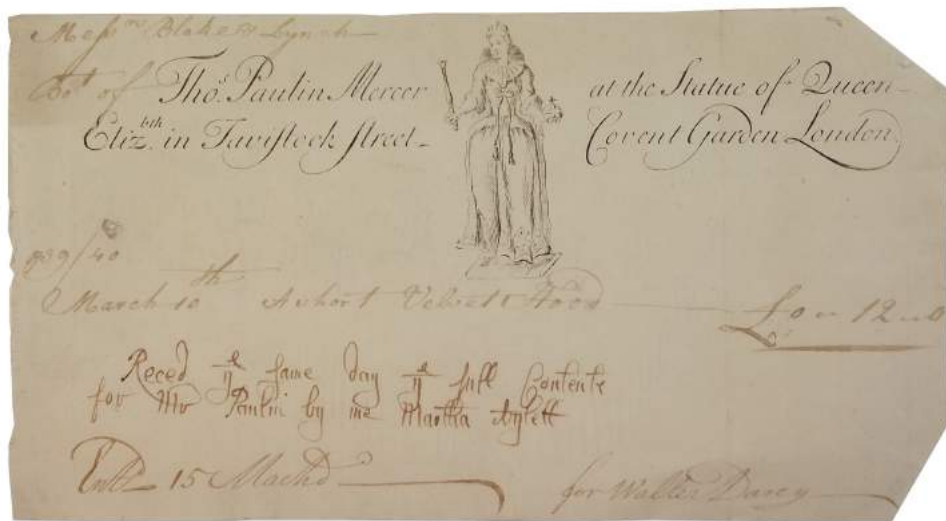 Messrs Blake & Lynch
Bot of Thos. Paulin Mercer at the Statue of Queen
Elizbth. in Tavistock Street Covent Garden London.
739/40
March 10th A short Velvett Hood £0 " 12 " 0
Reced ye same day ye full Contents
for Mr Paulin by me Martha Aylett
15
for Walter Darcy